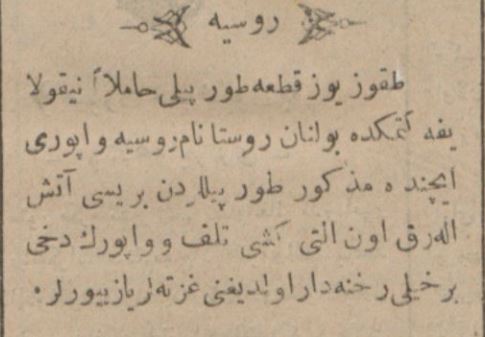 روسیه
طقوز یوز قطعه طور پیلی حاملاً نیقولا
یفه گتمكده بولنان روستا نام روسیه واپوری
ایچنده مذكور طور پیللردن بریسی آتش
اله‌رق اون التی كشی تلف و واپورك دخی
بر خیلی رخنه‌دار اولدیغنی غزته‌لر یازییورلر .